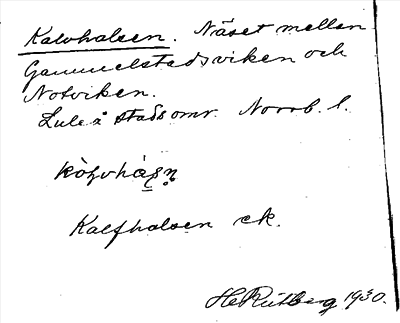 Kalvhalsen. Näset mellan
Gammelstadsviken och
Notviken.
Lule å stadsomr. Norrb. l.
Kalfhalsen ek.
HeRutberg 1930.